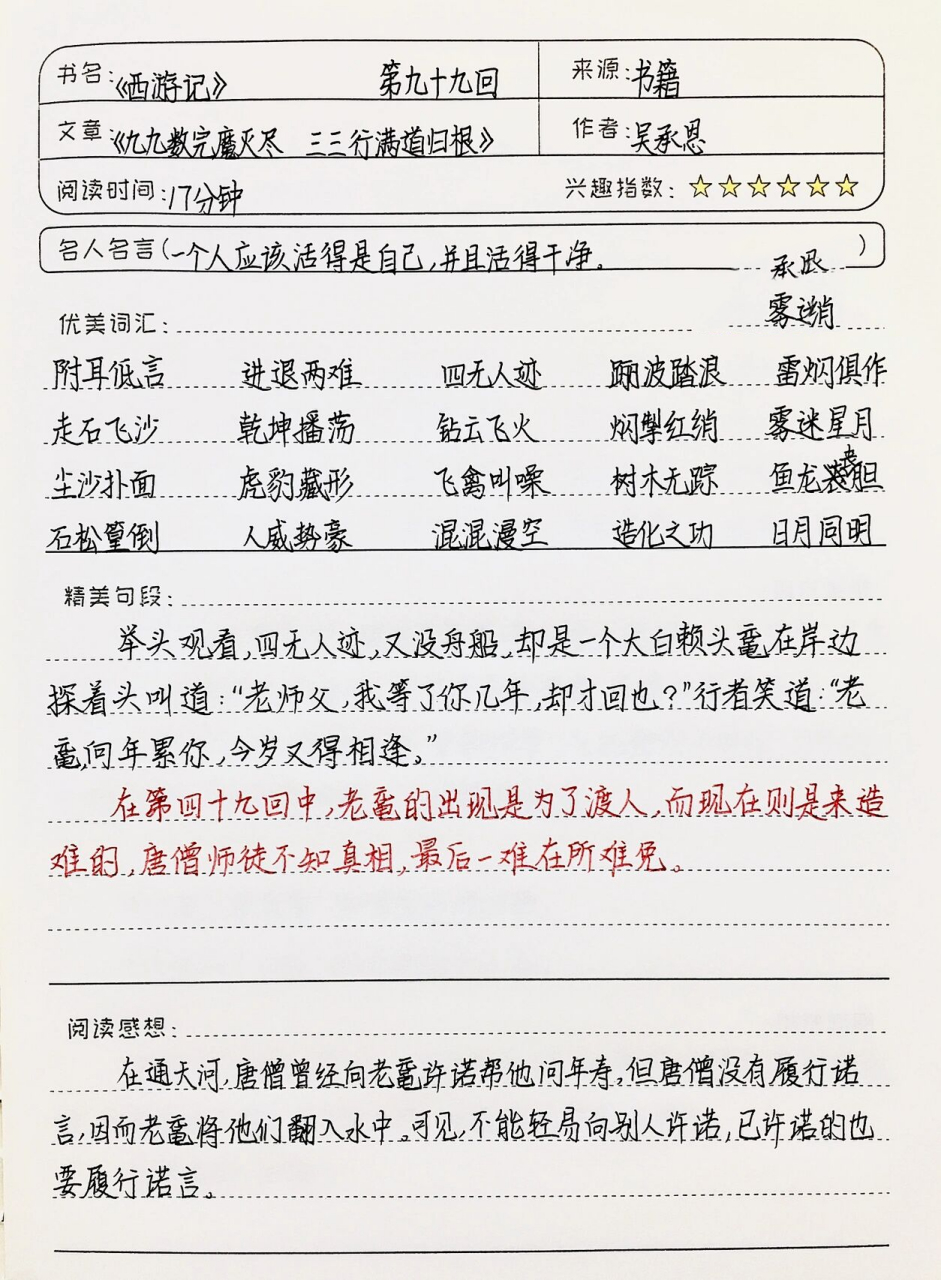 书名:《西游记》 第九十九回 来源:书籍
文章:《九九数完魔灭尽 三三行满道归根》 作者:吴承恩
阅读时间:17分钟 兴趣指数:☆☆☆☆☆☆
名人名言(一个人应该活得是自己,并且活得干净。)
承恩
优美词汇: 雾迷
附耳低言 进退两难 四无人迹 踊波踏浪 雷闪俱作
走石飞沙 乾坤播荡 钻云飞火 闪掣红绡 雾迷星月
尘沙扑面 虎豹藏形 飞禽叫噪 树木无踪 鱼龙丧胆
石松篁倒 人威势豪 混混漫空 造化之功 日月同明
精美句段:
举头观看,四无人迹,又没舟船,却是一个大白赖头鼋在岸边
探着头叫道:“老师父,我等了你几年,却才回也?”行者笑道:“老
鼋,向年累你,今岁又得相逢。”
在第四十九回中,老鼋的出现是为了渡人,而现在则是来造
难的,唐僧师徒不知真相,最后一难在所难免。
阅读感想:
在通天河,唐僧曾经向老鼋许诺帮他问年寿,但唐僧没有履行诺
言,因而老鼋将他们翻入水中。可见,不能轻易向别人许诺,已许诺的也
要履行诺言。